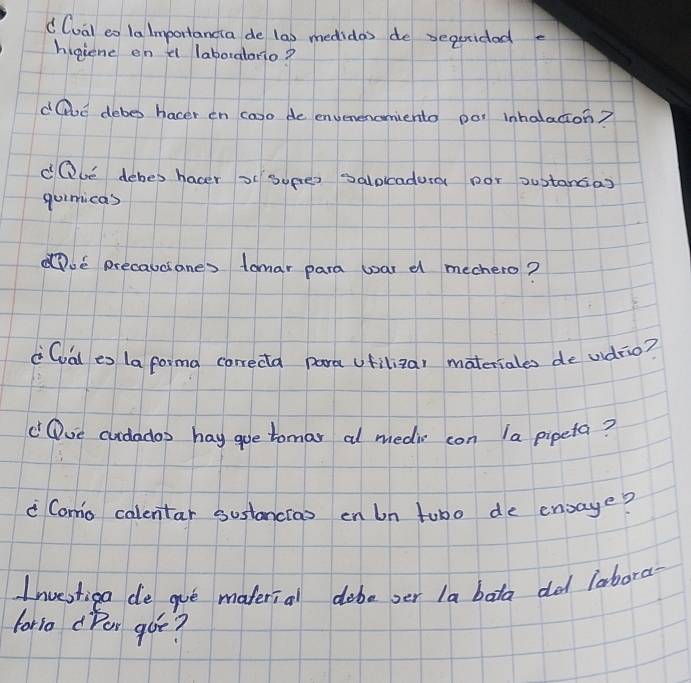 ¿Cuál es la Importancia de las medidas de seguridad e
higiene en el laboratorio?
¿Qué debes hacer en caso de envenenamiento por inhalación?
¿Qué debes hacer si sufres salpicadura por sustancias
químicas
¿Qué precauciones tomar para usar el mechero?
¿Cuál es la forma correcta para utilizar materiales de vidrio?
¿Qué cuidados hay que tomar al medir con la pipeta?
¿Como calentar sustancias en un tubo de ensaye?
Investiga de qué material debe ser la bata del labora-
torio ¿Por qué?